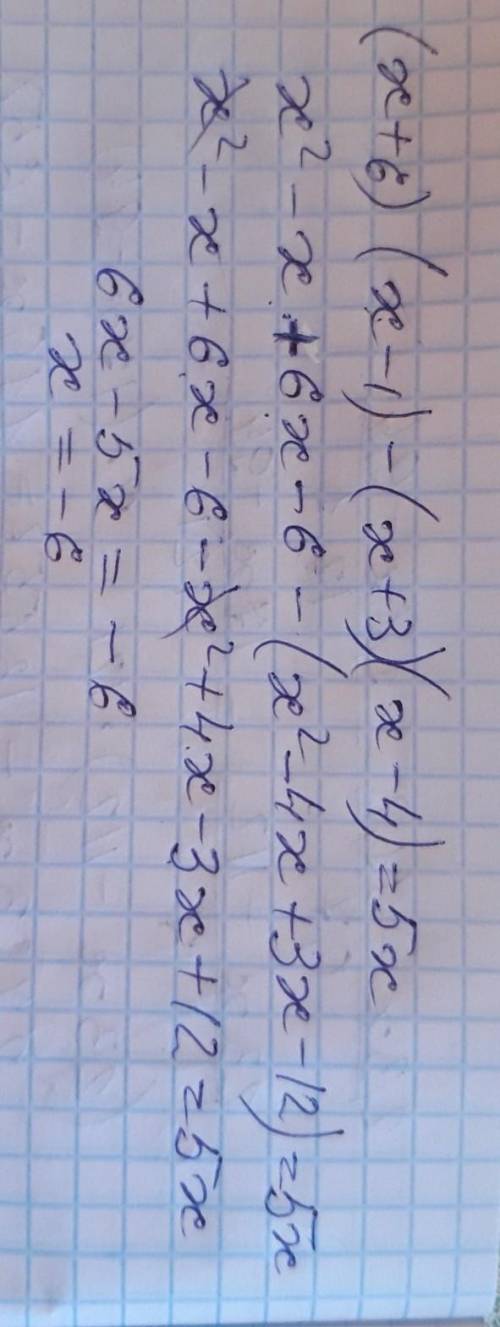 (x+6)(x-1)-(x+3)(x-4)=5x
x²-x+6x-6-(x²-4x+3x-12)=5x
x²-x+6x-6-x²+4x-3x+12=5x
6x-5x=-6
x=-6